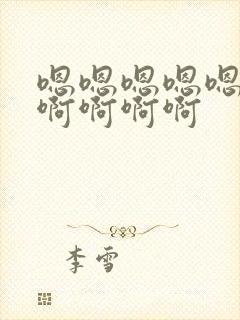 嗯嗯嗯嗯嗯
啊啊啊啊
李雪